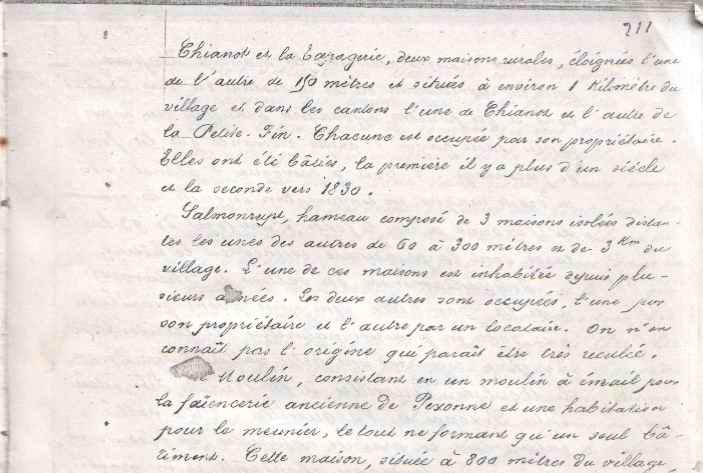 211
Thianot et la Garagerie, deux maisons rurales, éloignées l'une
de l'autre de 150 mètres et situées à environ 1 Kilomètre du
village et dans les cantons l'une de Thianot et l'autre de
la Petite-Fin. Chacune est occupée par son propriétaire.
Elles ont été bâties, la première il y a plus d'un siècle
et la seconde vers 1830.
Salmonrupt, hameau composé de 3 maisons isolées distan-
tes les unes des autres de 60 à 300 mètres et de 3 Km du
village. L'une de ces maisons est inhabitée depuis plu-
sieurs années. Les deux autres sont occupées, l'une par
son propriétaire et l'autre par un locataire. On n'en
connaît pas l'origine qui paraît être très reculée.
Moulin, consistant en un moulin à émail pour
la faïencerie ancienne de Pexonne et une habitation
pour le meunier, le tout ne formant qu'un seul bâ-
timent. Cette maison, située à 800 mètres du village